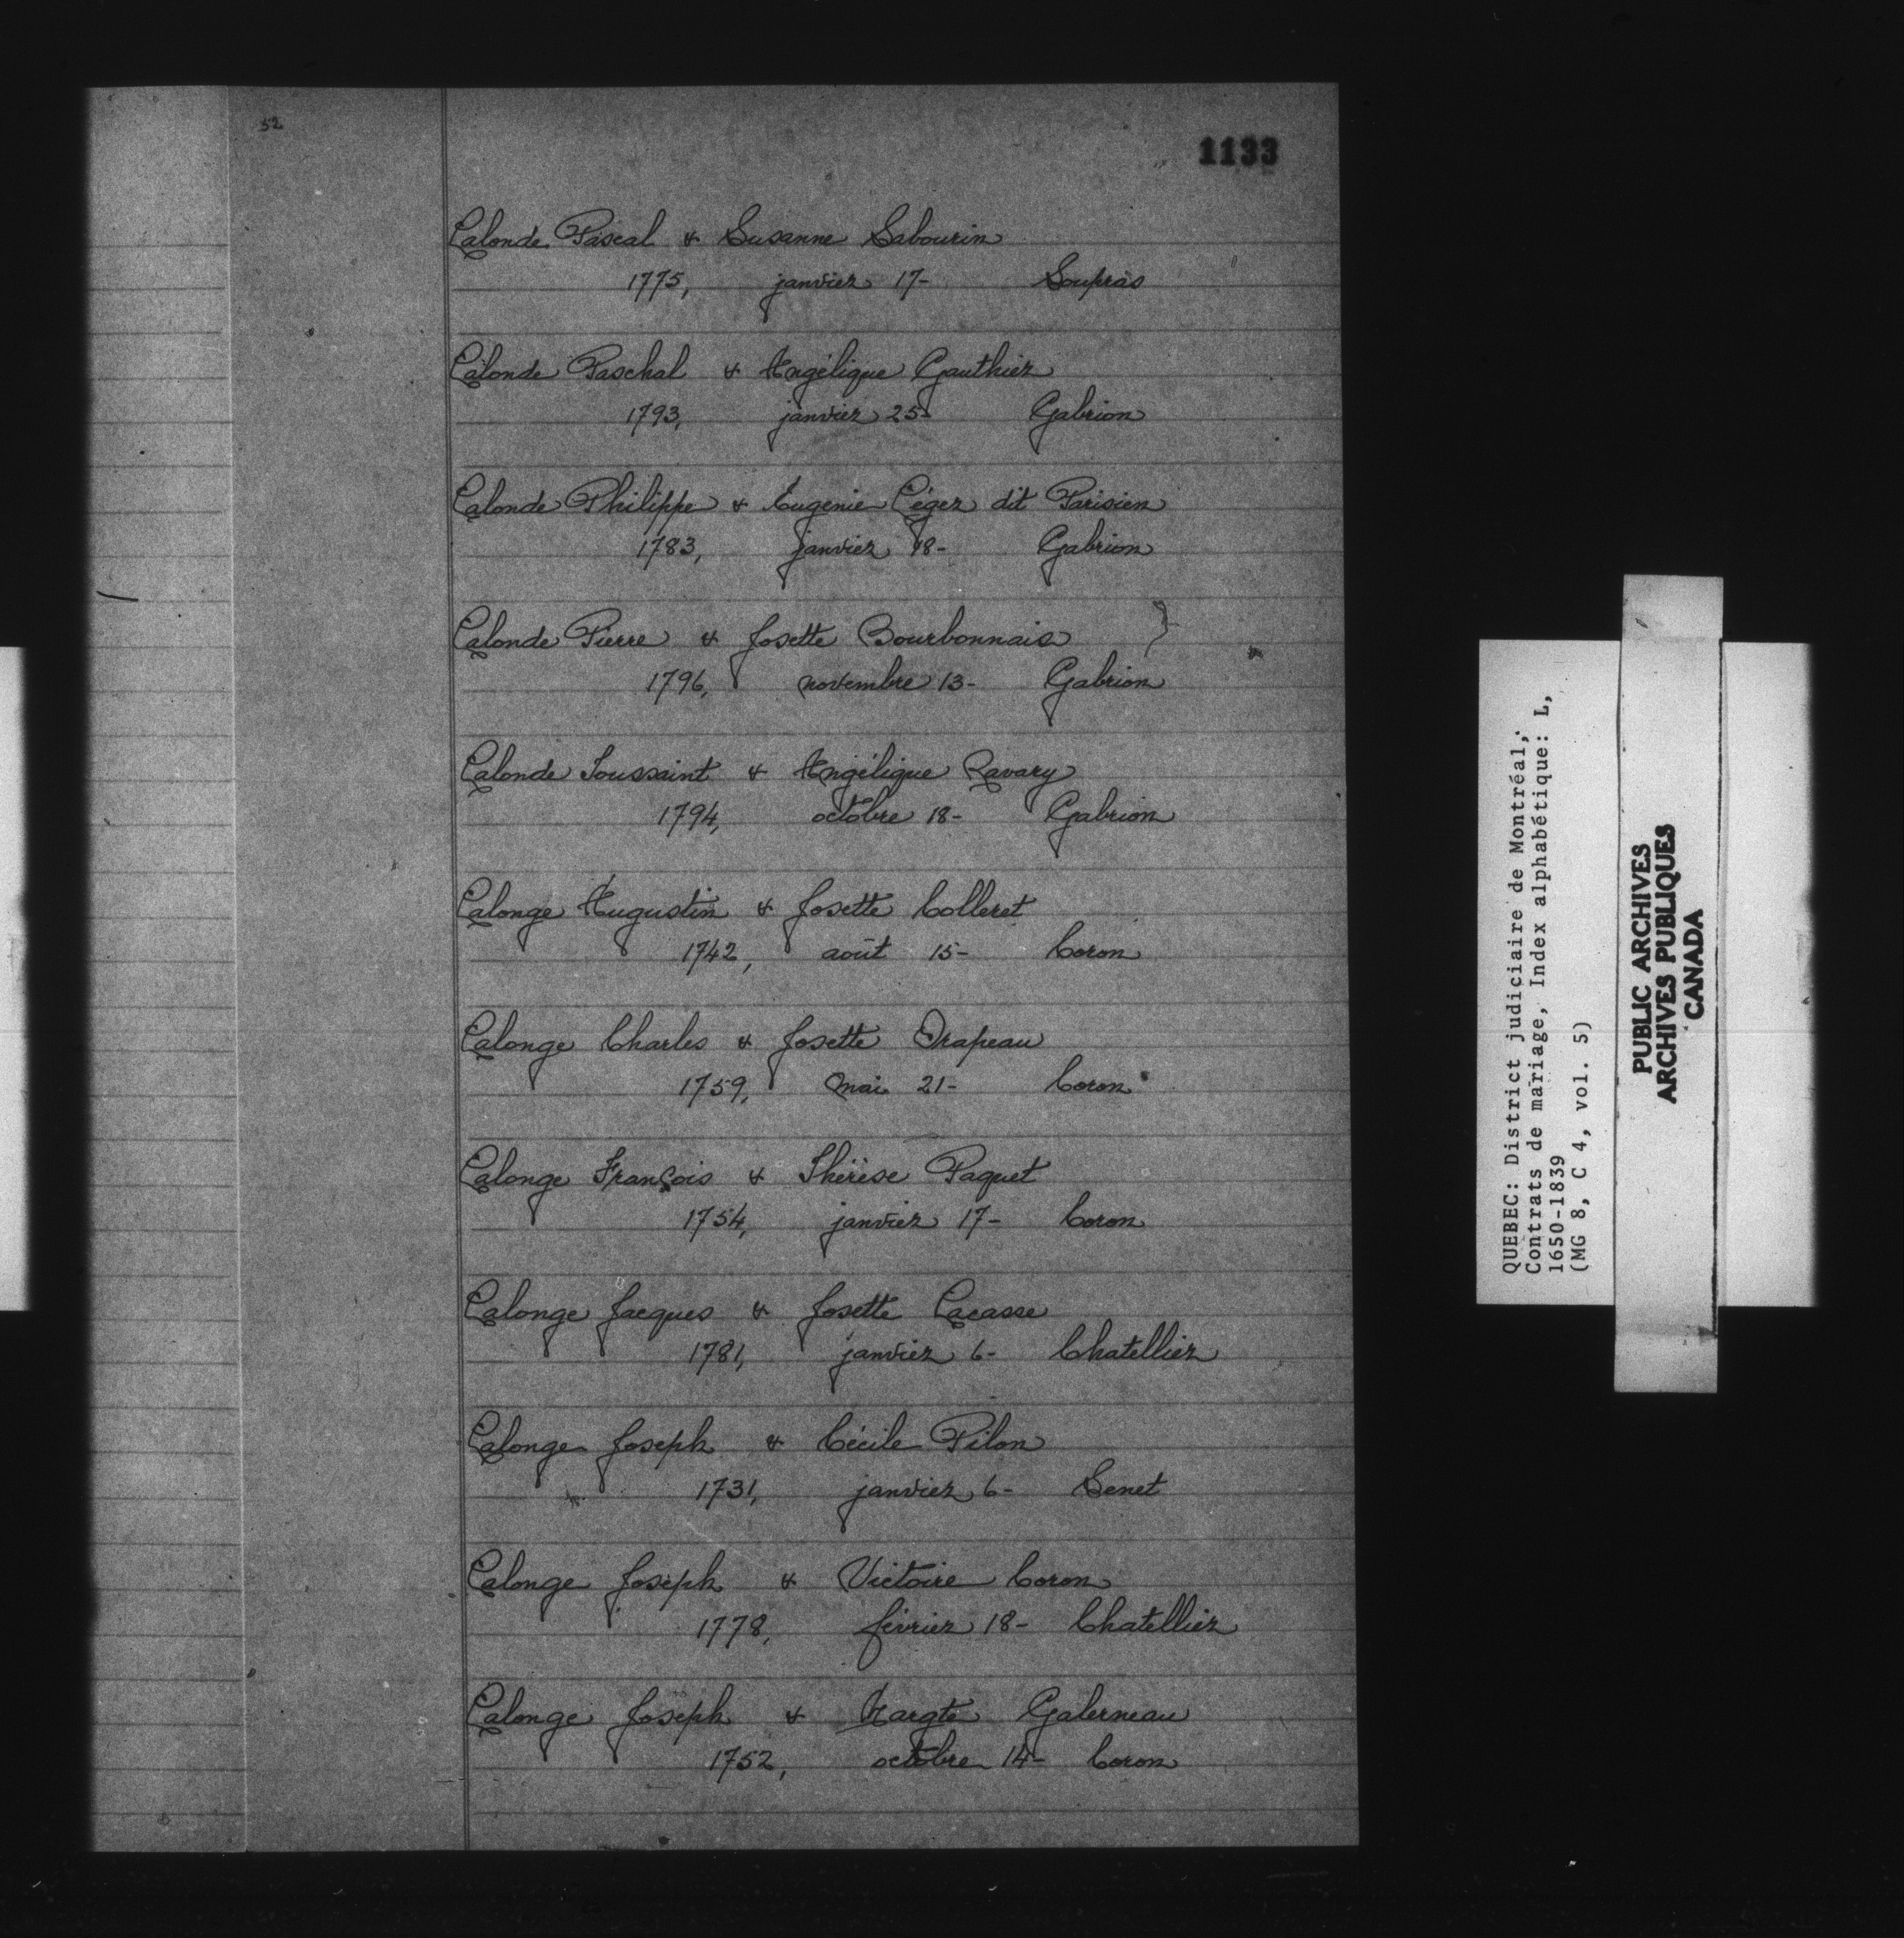 52
1133
Lalonde Pascal & Susanne Sabourin
1775, janvier 17- Soupras
Lalonde Paschal & Angélique Gauthier
1793, janvier 25- Gabrion
Lalonde Philippe & Eugenie Léger dit Parisien
1783, janvier 18- Gabrion
Lalonde Pierre & Josette Bourbonnais
1796, novembre 13- Gabrion
Lalonde Toussaint & Angélique Ravary
1794, octobre 18- Gabrion
Lalonge Augustin & Josette Colleret
1742, août 15- Coron
Lalonge Charles & Josette Drapeau
1759, mai 21- Coron
Lalonge François & Thérèse Paquet
1754, janvier 17- Coron
Lalonge Jacques & Josette Lacasse
1781, janvier 6- Chatellier
Lalonge Joseph & Cécile Pilon
1731, janvier 6- Senet
Lalonge Joseph & Victoire Coron
1778, février 18- Chatellier
Lalonge Joseph & Margte Galerneau
1752, octobre 14- Coron
QUEBEC: District judiciaire de Montréal,
Contrats de mariage, Index alphabétique: L,
1650-1839
(MG 8, C 4, vol. 5)
PUBLIC ARCHIVES
ARCHIVES PUBLIQUES
CANADA